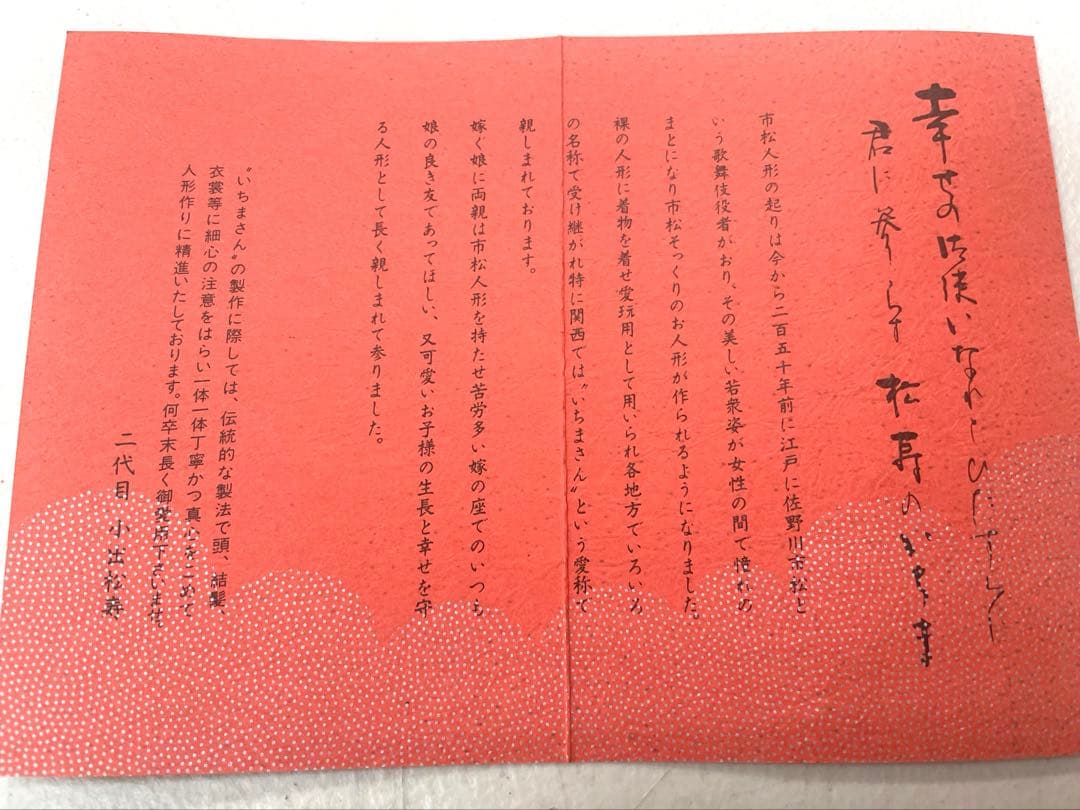 幸せの御使いなれとひたすらに
君に参らす 松寿のいちま
市松人形の起りは今から二百五十年前に江戸に佐野川市松と
いう歌舞伎役者がおり、その美しい若衆姿が女性の間で憧れの
まとになり市松そっくりのお人形が作られるようになりました。
裸の人形に着物を着せ愛玩用として用いられ各地方でいろいろ
の名称で受け継がれ特に関西では〝いちまさん〟という愛称で
親しまれております。
嫁ぐ娘に両親は市松人形を持たせ苦労多い嫁の座でのいつも
娘の良き友であってほしい、又可愛いお子様の生長と幸せを守
る人形として長く親しまれて参りました。
〝いちまさん〟の製作に際しては、伝統的な製法で頭、結髪、
衣裳等に細心の注意をはらい一体一体丁寧かつ真心をこめて
人形作りに精進いたしております。何卒末長く御愛用下さいませ。
二代目 小出松寿